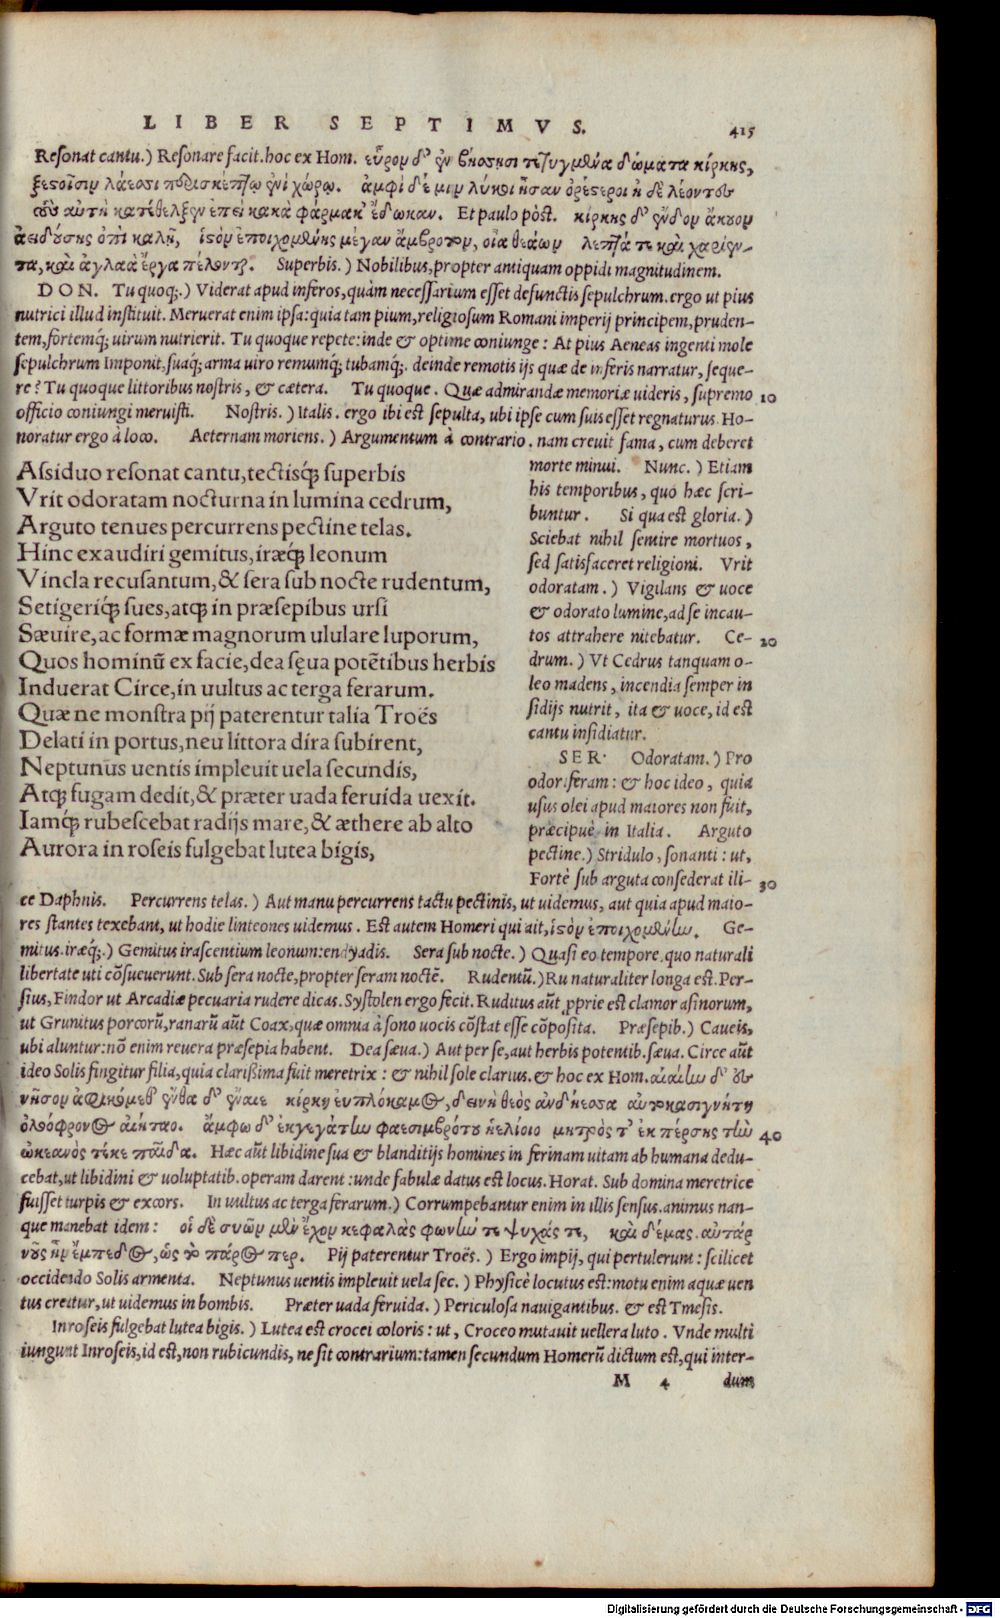 LIBER SEPTIMVS. 415
Resonat cantu.) Resonare facit. hoc ex Hom. εὗρον δ' ἐν βήσσῃσι τετυγμένα δώματα κίρκης,
ξεστοῖσιν λάεσσι περισκέπτῳ ἐνὶ χώρῳ. ἀμφὶ δέ μιν λύκοι ἦσαν ὀρέστεροι ἠ δὲ λέοντες
τοὺς αὐτὴ κατέθελξεν ἐπεὶ κακὰ φάρμακ' ἔδωκεν. Et paulo pòst. κίρκης δ' ἔνδον ἄκουον
ἀειδούσης ὀπὶ καλῇ, ἱστὸν ἐποιχομένης μέγαν ἄμβροτον, οἷα θεάων λεπτά τε καὶ χαρίεν-
τα, καὶ ἀγλαὰ ἔργα πέλονται. Superbis.) Nobilibus, propter antiquam oppidi magnitudinem.
DON. Tu quoq;.) Viderat apud inferos, quàm necessarium esset defunctis sepulchrum. ergo ut pius
nutrici illud instituit. Meruerat enim ipsa: quia tam pium, religiosum Romani imperij principem, pruden-
tem, fortemq; uirum nutrierit. Tu quoque repete: inde & optime coniunge: At pius Aeneas ingenti mole
sepulchrum Imponit, suaq; arma uiro remumq; tubamq;. deinde remotis ijs quæ de inferis narratur, seque-
re? Tu quoque littoribus nostris, & cætera. Tu quoque. Quæ admirandæ memoriæ uideris, supremo 10
officio coniungi meruisti. Nostris.) Italis. ergo ibi est sepulta, ubi ipse cum suis esset regnaturus. Ho-
noratur ergo à loco. Aeternam moriens.) Argumentum à contrario. nam creuit fama, cum deberet
Assiduo resonat cantu, tectisq; superbis
Vrit odoratam nocturna in lumina cedrum,
Arguto tenues percurrens pectine telas.
Hinc exaudiri gemitus, iræq; leonum
Vincla recusantum, & sera sub nocte rudentum,
Setigeriq; sues, atq; in præsepibus ursi
Sæuire, ac formæ magnorum ululare luporum,
Quos hominū ex facie, dea sęua potētibus herbis
Induerat Circe, in uultus ac terga ferarum.
Quæ ne monstra pij paterentur talia Troës
Delati in portus, neu littora dira subirent,
Neptunus uentis impleuit uela secundis,
Atq; fugam dedit, & præter uada feruida uexit.
Iamq; rubescebat radijs mare, & æthere ab alto
Aurora in roseis fulgebat lutea bigis,
morte minui. Nunc.) Etiam
his temporibus, quo hæc scri-
buntur. Si qua est gloria.)
Sciebat nihil sentire mortuos,
sed satisfaceret religioni. Vrit
odoratam.) Vigilans & uoce
& odorato lumine, ad se incau-
tos attrahere nitebatur. Ce- 20
drum.) Vt Cedrus tanquam o-
leo madens, incendia semper in
sidijs nutrit, ita & uoce, id est
cantu insidiatur.
SER. Odoratam.) Pro
odoriferam: & hoc ideo, quia
usus olei apud maiores non fuit,
præcipuè in Italia. Arguto
pectine.) Stridulo, sonanti: ut,
Fortè sub arguta consederat ili- 30
ce Daphnis. Percurrens telas.) Aut manu percurrens tactu pectinis, ut uidemus, aut quia apud maio-
res stantes texebant, ut hodie linteones uidemus. Est autem Homeri qui ait, ἱστὸν ἐποιχομένην. Ge-
mitus. iræq;.) Gemitus irascentium leonum: endyadis. Sera sub nocte.) Quasi eo tempore, quo naturali
libertate uti cōsueuerunt. Sub sera nocte, propter seram noctē. Rudentū.) Ru naturaliter longa est. Per-
sius, Findor ut Arcadiæ pecuaria rudere dicas. Systolen ergo fecit. Ruditus aūt ꝓprie est clamor asinorum,
ut Grunitus porcorū, ranarū aūt Coax, quæ omnia à sono uocis cōstat esse cōposita. Præsepib.) Caueis,
ubi aluntur: nō enim reuera præsepia habent. Dea sæua.) Aut per se, aut herbis potentib. sæua. Circe aūt
ideo Solis fingitur filia, quia clarißima fuit meretrix: & nihil sole clarius. & hoc ex Hom. αἰαίην δ' ἐς
νῆσον ἀφικόμεθ' ἔνθα δ' ἔναιε κίρκη ἐυπλόκαμος, δεινὴ θεὸς αὐδήεσσα αὐτοκασιγνήτη
ὀλοόφρονος αἰήταο. ἄμφω δ' ἐκγεγάτην φαεσιμβρότου ἠελίοιο μητρὸς τ' ἐκ πέρσης τὴν 40
ὠκεανὸς τέκε παῖδα. Hæc aūt libidine sua & blanditijs homines in ferinam uitam ab humana dedu-
cebat, ut libidini & uoluptatib. operam darent: unde fabulæ datus est locus. Horat. Sub domina meretrice
fuisset turpis & excors. In uultus ac terga ferarum.) Corrumpebantur enim in illis sensus. animus nan-
que manebat idem: οἱ δὲ συῶν μὲν ἔχον κεφαλὰς φωνήν τε ψυχάς τε, καὶ δέμας. αὐτὰρ
νοῦς ἦν ἔμπεδος, ὡς τὸ πάρος περ. Pij paterentur Troës.) Ergo impij, qui pertulerunt: scilicet
occidendo Solis armenta. Neptunus uentis impleuit uela sec.) Physicè locutus est: motu enim aquæ uen
tus creatur, ut uidemus in bombis. Præter uada feruida.) Periculosa nauigantibus. & est Tmesis.
In roseis fulgebat lutea bigis.) Lutea est crocei coloris: ut, Croceo mutauit uellera luto. Vnde multi
iungunt Inroseis, id est, non rubicundis, ne sit contrarium: tamen secundum Homerū dictum est, qui inter-
M 4 dum
Digitalisierung gefördert durch die Deutsche Forschungsgemeinschaft - DFG